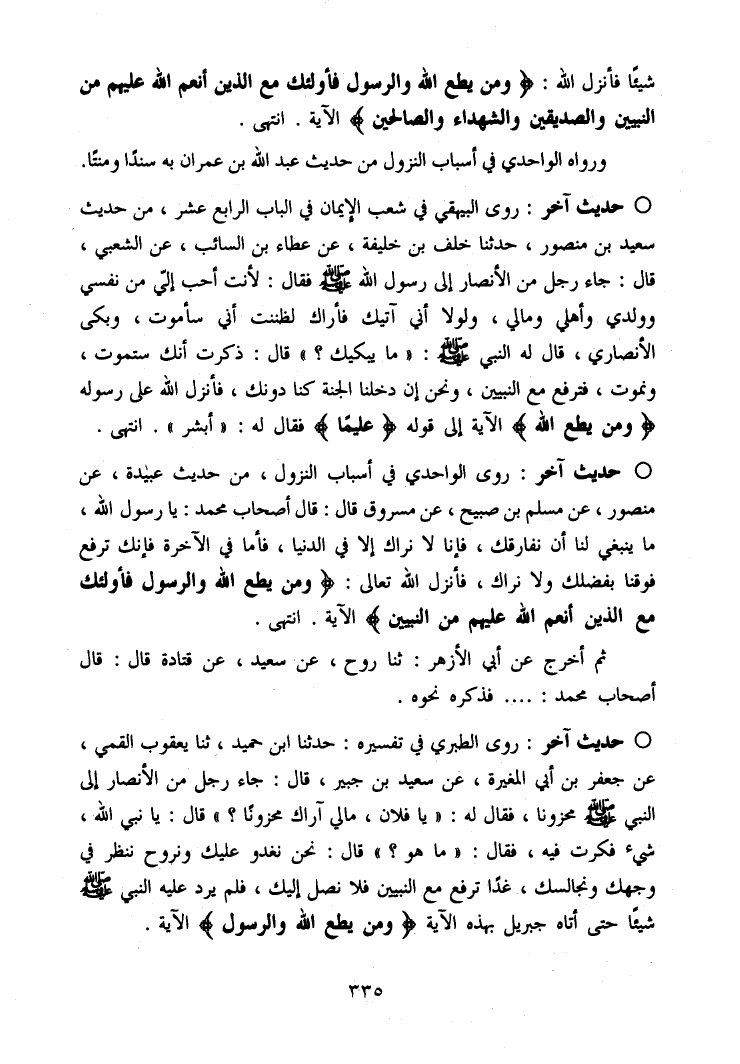 شيئًا فأنزل الله : ﴿ ومن يطع الله والرسول فأولئك مع الذين أنعم الله عليهم من
النبيين والصديقين والشهداء والصالحين ﴾ الآية . انتهى .
ورواه الواحدي في أسباب النزول من حديث عبد الله بن عمران به سندًا ومتنًا.
○ حديث آخر : روى البيهقي في شعب الإيمان في الباب الرابع عشر ، من حديث
سعيد بن منصور ، حدثنا خلف بن خليفة ، عن عطاء بن السائب ، عن الشعبي ،
قال : جاء رجل من الأنصار إلى رسول الله ﷺ فقال : لأنت أحب إليّ من نفسي
وولدي وأهلي ومالي ، ولولا أني آتيك فأراك لظننت أني سأموت ، وبكى
الأنصاري ، قال له النبي ﷺ : « ما يبكيك ؟ » قال : ذكرت أنك ستموت ،
ونموت ، فترفع مع النبيين ، ونحن إن دخلنا الجنة كنا دونك ، فأنزل الله على رسوله
﴿ ومن يطع الله ﴾ الآية إلى قوله ﴿ عليمًا ﴾ فقال له : « أبشر » . انتهى .
○ حديث آخر : روى الواحدي في أسباب النزول ، من حديث عبيدة ، عن
منصور ، عن مسلم بن صبيح ، عن مسروق قال : قال أصحاب محمد : يا رسول الله ،
ما ينبغي لنا أن نفارقك ، فإنا لا نراك إلا في الدنيا ، فأما في الآخرة فإنك ترفع
فوقنا بفضلك ولا نراك ، فأنزل الله تعالى : ﴿ ومن يطع الله والرسول فأولئك
مع الذين أنعم الله عليهم من النبيين ﴾ الآية . انتهى .
ثم أخرج عن أبي الأزهر : ثنا روح ، عن سعيد ، عن قتادة قال : قال
أصحاب محمد : .... فذكره نحوه .
○ حديث آخر : روى الطبري في تفسيره : حدثنا ابن حميد ، ثنا يعقوب القمي ،
عن جعفر بن أبي المغيرة ، عن سعيد بن جبير ، قال : جاء رجل من الأنصار إلى
النبي ﷺ محزونا ، فقال له : « يا فلان ، مالي آراك محزونًا ؟ » قال : يا نبي الله ،
شيء فكرت فيه ، فقال : « ما هو ؟ » قال : نحن نغدو عليك ونروح ننظر في
وجهك ونجالسك ، غدًا ترفع مع النبيين فلا نصل إليك ، فلم يرد عليه النبي ﷺ
شيئًا حتى أتاه جبريل بهذه الآية ﴿ ومن يطع الله والرسول ﴾ الآية .
٣٣٥